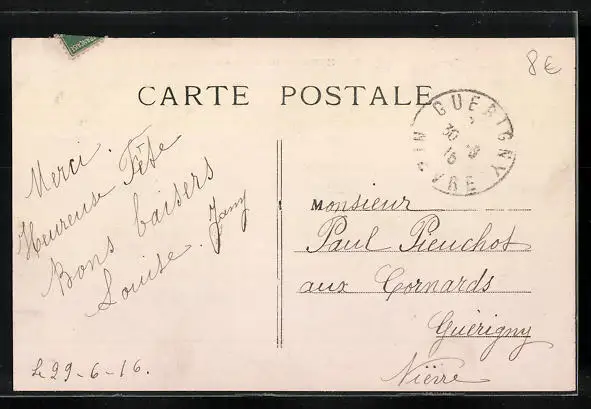 8€
CARTE POSTALE
GUERIGNY
30
16
NIEVRE
Merci.
Heureuse Fête
Bons baisers
Louise.
le 29-6-16.
Monsieur
Paul Pieuchot
aux Cornards
Guérigny
Nièvre